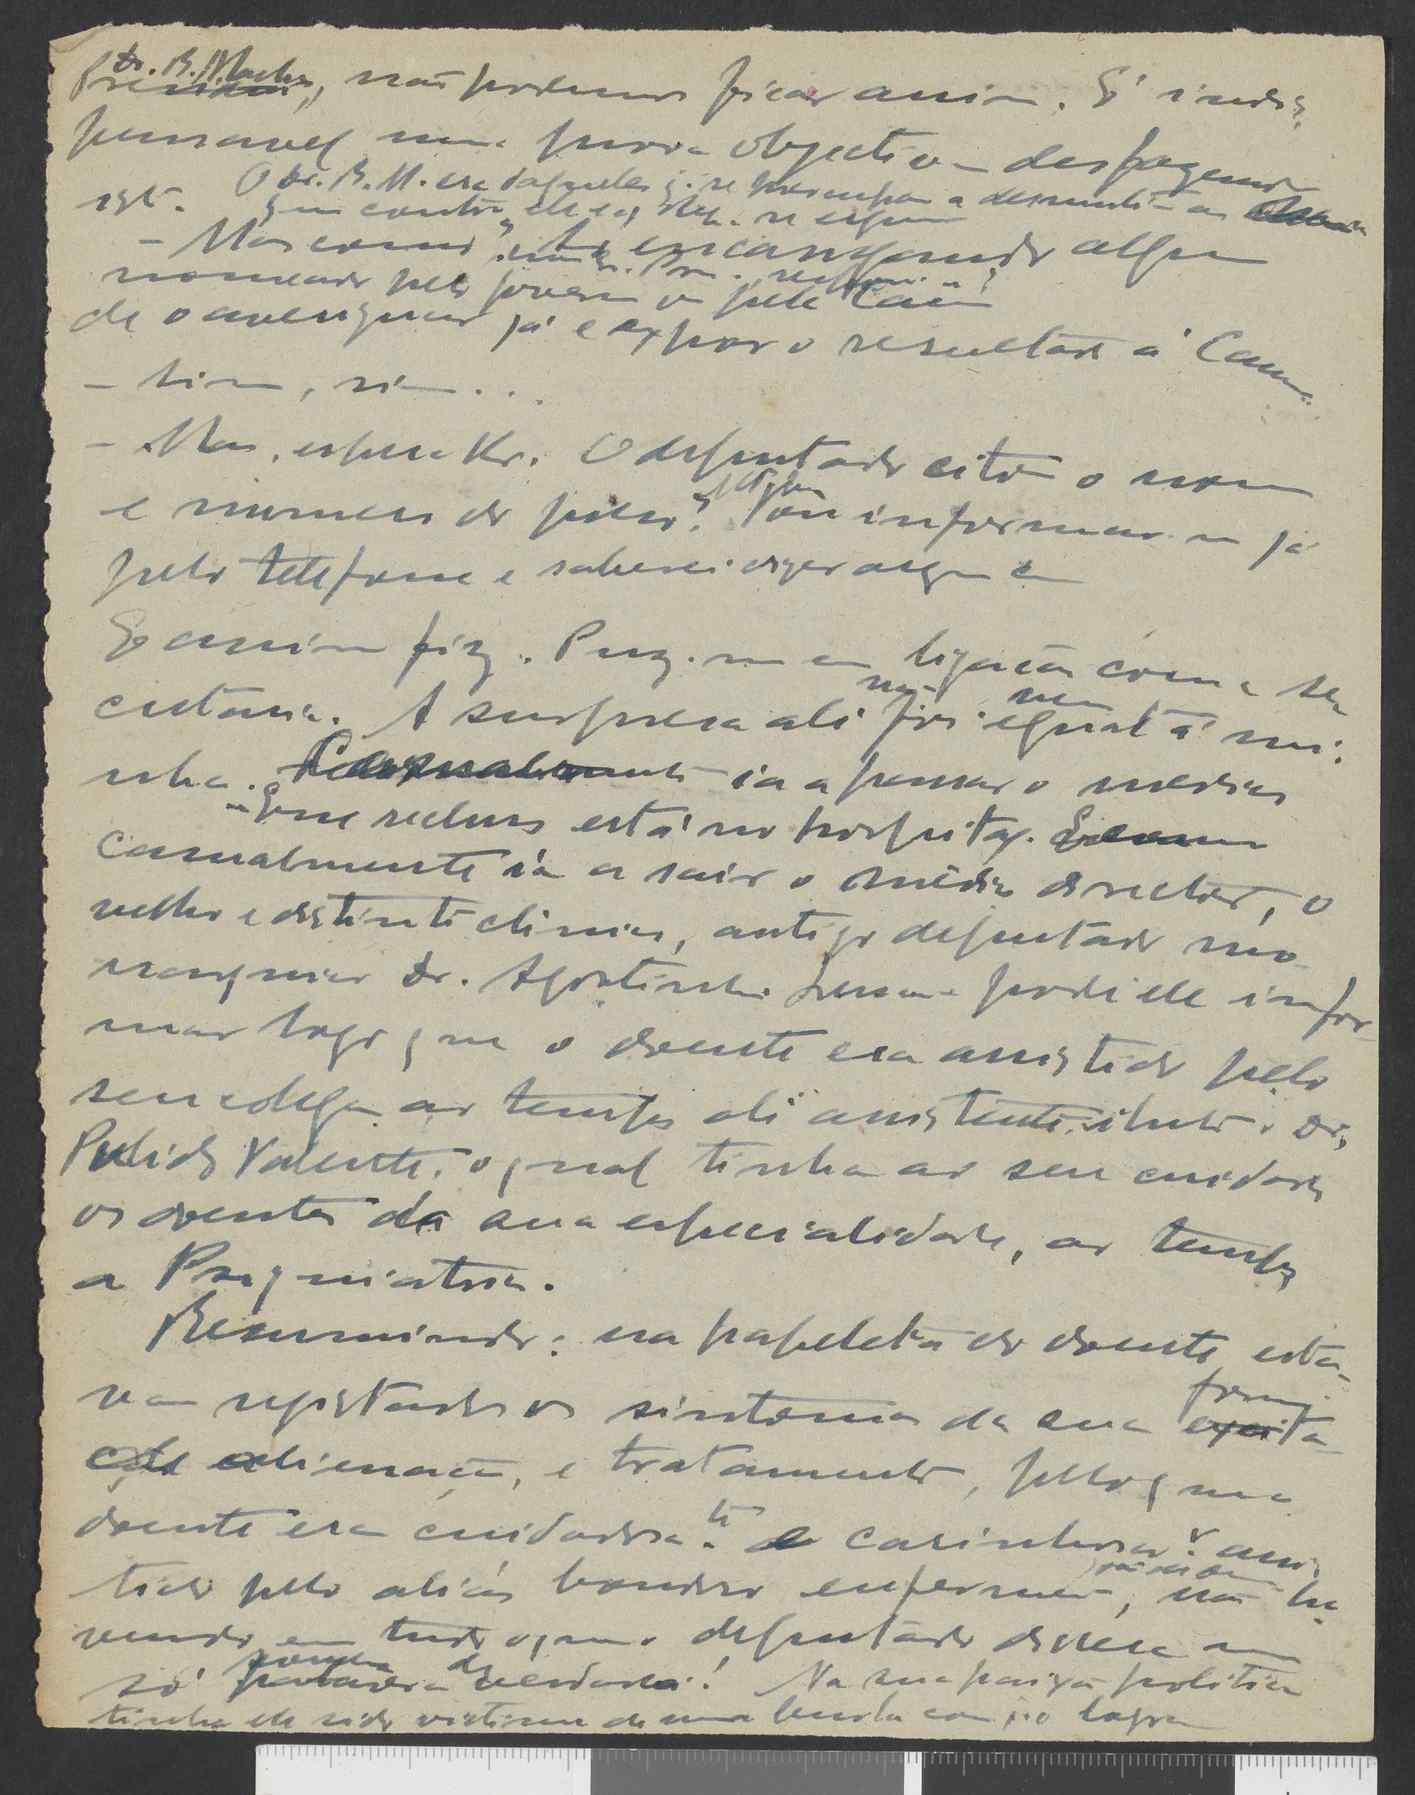 Dr. B. Machado, não podemos ficar assim. É indis-
pensavel uma prova objectiva desfazendo
isto. O Dr. B. M. era daqueles q. se a desmentir as
que contra ele
– Mas como? encarregando alguem
nomeado pelo governo ou pela
de o averiguar já e expor o resultado á Cam.
– Sim, sim...
– Mas, espere Dr. O deputado citou o nome
e numero do preso? Vou informar-me já
pelo telefone e saberei dizer alguma
E assim fiz. Puz-me em ligação com a se-
cretaria. A surpresa ali não foi egual á mi-
nha. ia a passar o medico
– Esse recluso está no hospital.
casualmente ia a sair o médico director, o
velho e distinto clinico, antigo deputado mo-
narquico Dr. Agostinho Lucio pode ele infor-
mar logo que o doente era assistido pelo
seu colega ao tempo ali assistente Dr.
Pulido Valente, o qual tinha ao seu cuidado
os doentes da sua especialidade, ao tempo
a Psiquiatria.
Resumindo: na papeleta do doente esta-
vam registados os sintomas da sua
de alienação, e tratamento, pelo que
doente era cuidadosa.te e carinhosa.e assis-
tido pelo aliás bondoso enfermeiro, não ha-
vendo em tudo o que o deputado dissera um
só de verdade! Na sua paixão politica
tinha ele sido vitima de uma burla com q. o